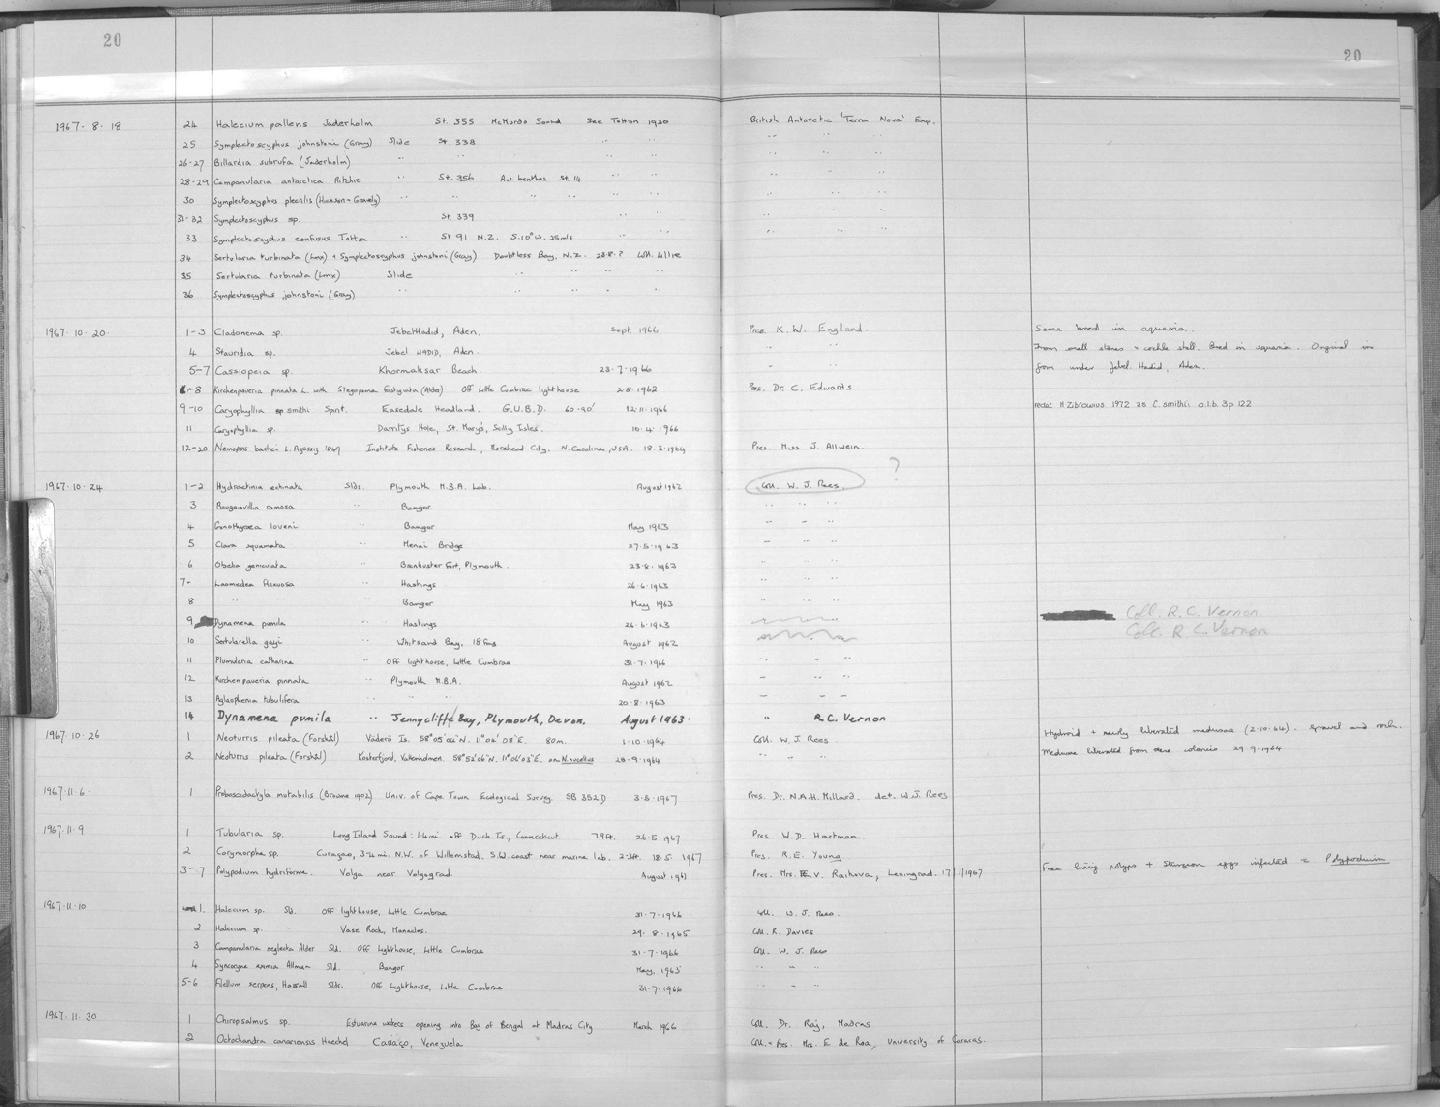 20
20
1967.8.18 24 Halecium pallens Jäderholm St. 355 McMurdo Sound See Totton 1930 British Antarctic 'Terra Nova' Exp.
25 Symplectoscyphus johnstoni (Gray) Slide St. 338 " " " " "
26-27 Billardia subrufa (Jäderholm) " " " " " " "
28-29 Campanularia antarctica Ritchie " St. 356 benthos St. 14 " " " " "
30 Symplectoscyphus plectilis (Hickson + Gravely) " " " " " " " " "
31-32 Symplectoscyphus sp. St. 339 " " " " "
33 Symplectoscyphus confusus Totton " St 91 N.Z. " " " " "
34 Sertularia turbinata (Lmx) + Symplectoscyphus johnstoni (Gray) Doubtless Bay, N.Z. Coll.
35 Sertularia turbinata (Lmx) Slide " " " "
36 Symplectoscyphus johnstoni (Gray) " " " " "
1967.10.20 1-3 Cladonema sp. Jebel Hadid, Aden. Sept. 1966 Pres. K. W. England Some bred in aquaria.
4 Stauridia sp. Jebel HADID, Aden. " " From small stones + cockle shell. Bred in aquaria. Original in
5-7 Cassiopeia sp. Khormaksar Beach 23.7.1966 " " from under Jebel Hadid, Aden.
8 Kirchenpaueria pinnata L. with Stegopoma fastigiata (Alder) Off Little Cumbrae lighthouse 2.8.1962 Pres. Dr. C. Edwards
9-10 Caryophyllia sp smithi Spirit. Easedale Headland. G.U.B.D. 60-90' 12.11.1966 redet H Zibrowius 1972 as C. smithii
11 Caryophyllia sp. St. Mary's, Scilly Isles. 10.4.1966
12-20 Nemopsis bachei L. Agassiz 1849 Institute Fisheries Research, Morehead City, N. Carolina, USA. Pres. Miss J. Allwein
1967.10.24 1-2 Hydractinia echinata Slds. Plymouth M.B.A. Lab. August 1962 Coll. W. J. Rees. ?
3 Bougainvillia ramosa " Bangor " " "
4 Gonothyraea loveni " Bangor May 1963 " " "
5 Clava squamata " Menai Bridge 27.5.1963 " " "
6 Obelia geniculata " Fort, Plymouth. 23.8.1963 " " "
7 Laomedea flexuosa " Hastings 26.6.1963 " " "
8 " " Bangor May 1963 " " "
9 Dynamena pumila " Hastings 26.6.1963 Coll. R. C. Vernon
10 Sertularella gayi " Whitsand Bay, 18 fms August 1962 Coll. R. C. Vernon
11 Plumularia catharina " Off lighthouse, Little Cumbrae 31.7.1966 " " "
12 Kirchenpaueria pinnata " Plymouth M.B.A. August 1962 " " "
13 Aglaophenia tubulifera " " " 20.8.1963 " " "
14 Dynamena pumila " Jennycliff Bay, Plymouth, Devon. August 1963 " R. C. Vernon
1967.10.26 1 Neoturris pileata (Forskål) Väderö Is. 80m. 1.10.1964 Coll. W. J. Rees Hydroid + newly liberated medusae (2.10.64). Gravel and rock.
2 Neoturris pileata (Forskål) Kosterfjord, 58°52'06"N. 11°06'03"E. on N. nucleus 28.9.1964 " " " Medusae liberated from these colonies 29.9.1964
1967.11.6 1 Proboscidactyla mutabilis (Browne 1902) Univ. of Cape Town Ecological Survey. SB 352D 3.5.1967 Pres. Dr. N.A.H. Millard. det. W.J. Rees
1967.11.9 1 Tubularia sp. Long Island Sound: off Duck Is., Connecticut 79ft. 26.5.1967 Pres. W. D. Hartman.
2 Corymorpha sp. Curaçao, N.W. of Willemstad. S.W. coast near marine lab. 18.5.1967 Pres. R.E. Young
3-7 Polypodium hydriforme. Volga near Volgograd. August 1961 Pres. Mrs. E.V. Raikova, Leningrad. Free living polyps + Sturgeon eggs infected = Polypodium
1967.11.10 1. Halecium sp. Sld. Off lighthouse, Little Cumbrae 31.7.1966 Coll. W. J. Rees.
2 Halecium sp. Vase Rock, Manacles. 29.8.1965 Coll. R. Davies
3 Campanularia neglecta Alder Sld. Off Lighthouse, Little Cumbrae 31.7.1966 Coll. W. J. Rees
4 Syncoryne eximia Allman Sld. Bangor May, 1963 " " "
5-6 Filellum serpens, Hassall Slds. Off Lighthouse, Little Cumbrae 31.7.1966 " " "
1967.11.30 1 Chiropsalmus sp. Estuarine waters opening into Bay of Bengal at Madras City March 1966 Coll. Dr. Raj, Madras
2 Octochandra canariensis Haeckel Cariaco, Venezuela Coll. + Pres. Mrs. E de Roa, University of Caracas.